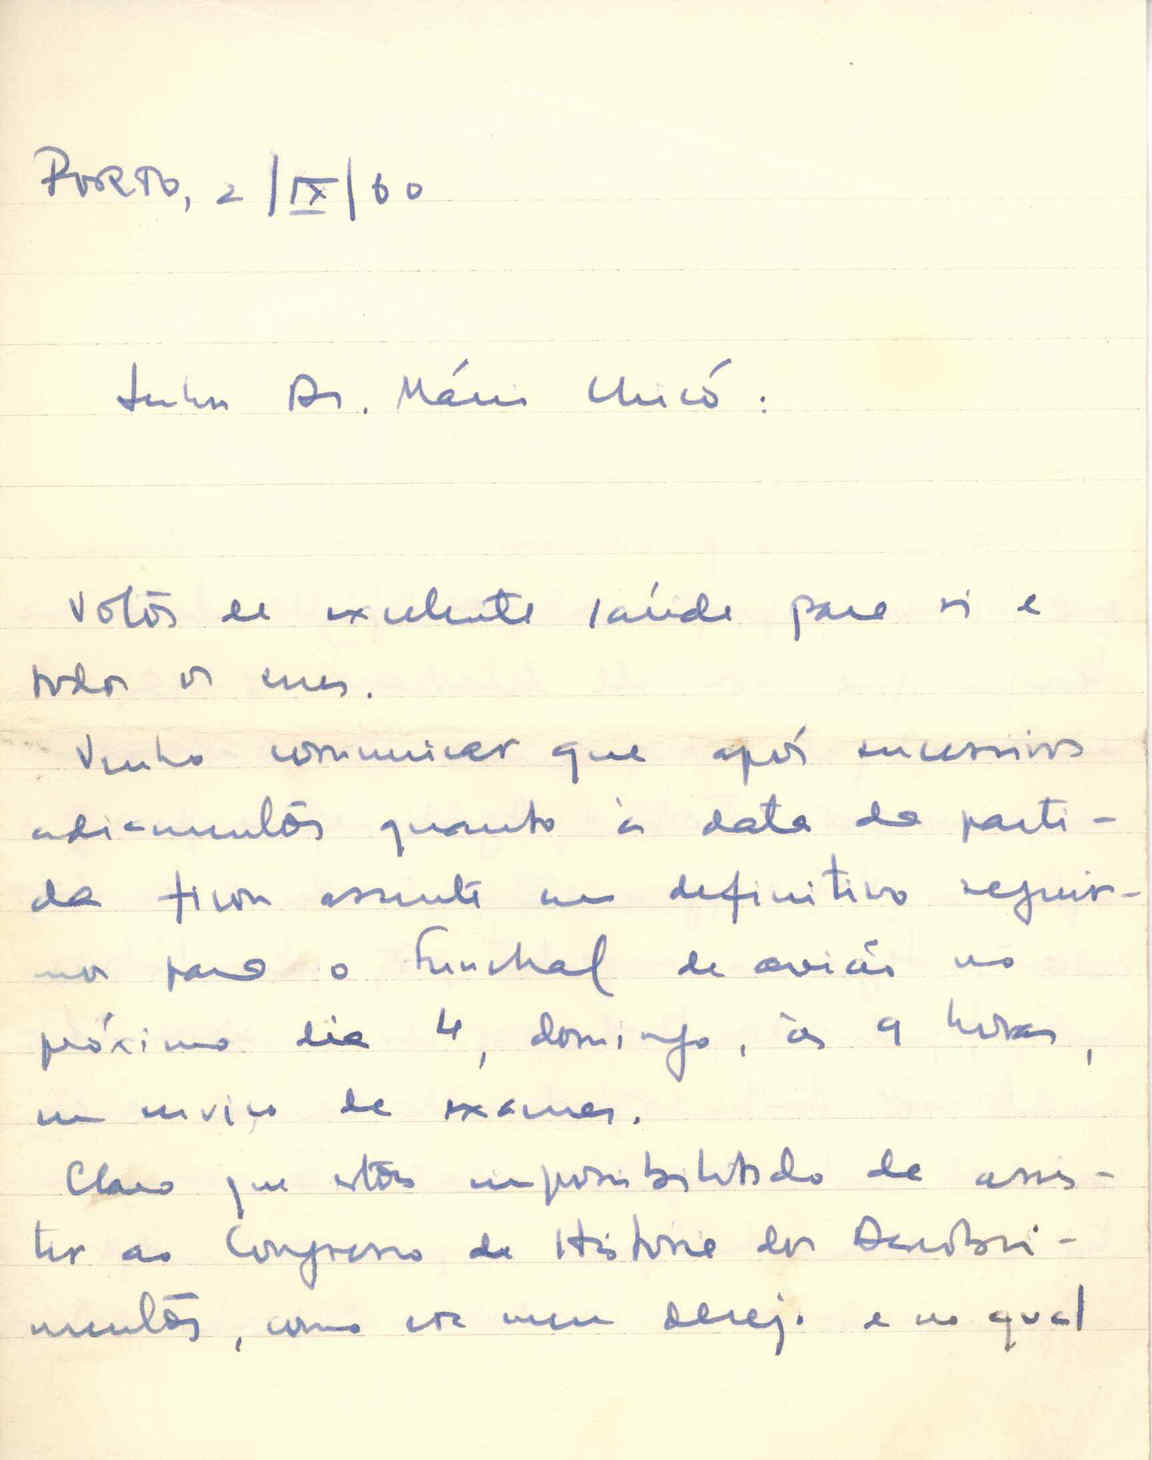 Porto, 2/IX/60
Senhor Dr. Mário Chicó:
Votos de excelente saúde para si e
todos os seus.
Venho comunicar que após sucessivos
adiamentos quanto à data da parti-
da ficou assente em definitivo seguir-
mos para o Funchal de avião no
próximo dia 4, domingo, às 9 horas,
em serviço de exames.
Claro que estou impossibilitado de assis-
tir ao Congresso da História dos Descobri-
mentos, como era meu desejo e no qual